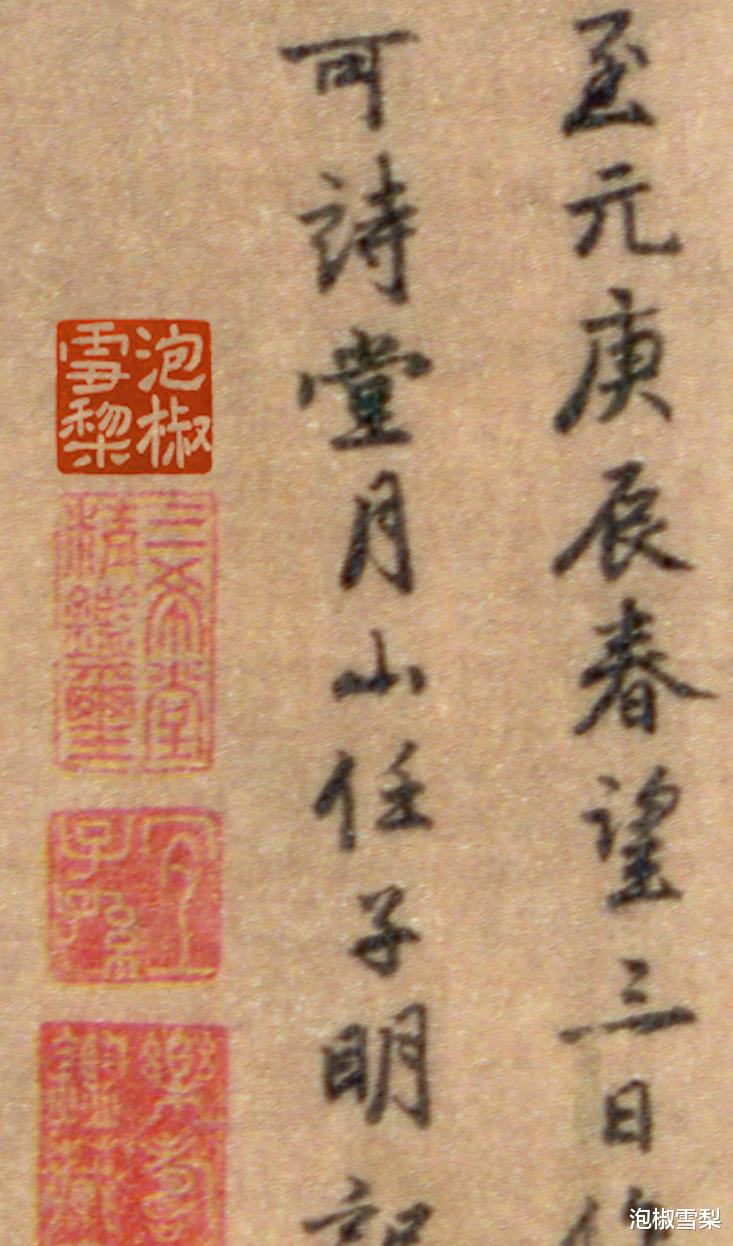 至元庚辰春望三日作
可詩堂月山任子明記
泡椒
雪梨
三希堂
精鑑璽
宜
子孫
泡椒雪梨